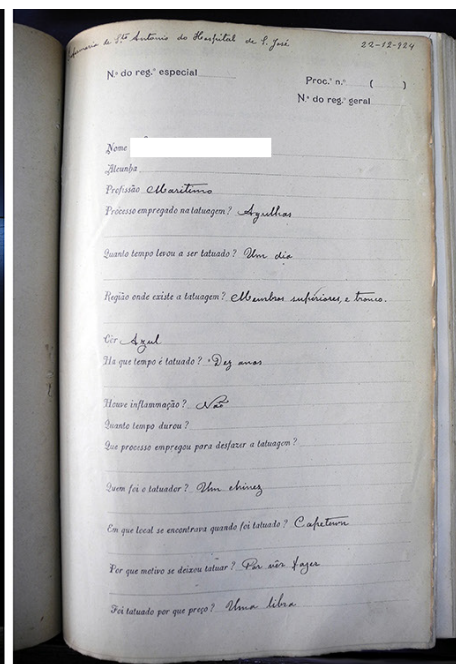 Enfermaria de Sto Antonio do Hospital de S. José 22-12-924
N.º do reg.º especial
Proc.º n.º ( )
N.º do reg.º geral
Nome
Alcunha
Profissão Maritimo
Processo empregado na tatuagem? Agulhas
Quanto tempo levou a ser tatuado? Um dia
Região onde existe a tatuagem? Membros superiores, e tronco.
Côr Azul
Ha que tempo é tatuado? Dez anos
Houve inflammação? Não
Quanto tempo durou?
Que processo empregou para desfazer a tatuagem?
Quem foi o tatuador? Um chinez
Em que local se encontrava quando foi tatuado? Capetown
Por que motivo se deixou tatuar? Por vêr fazer
Foi tatuado por que preço? Uma libra